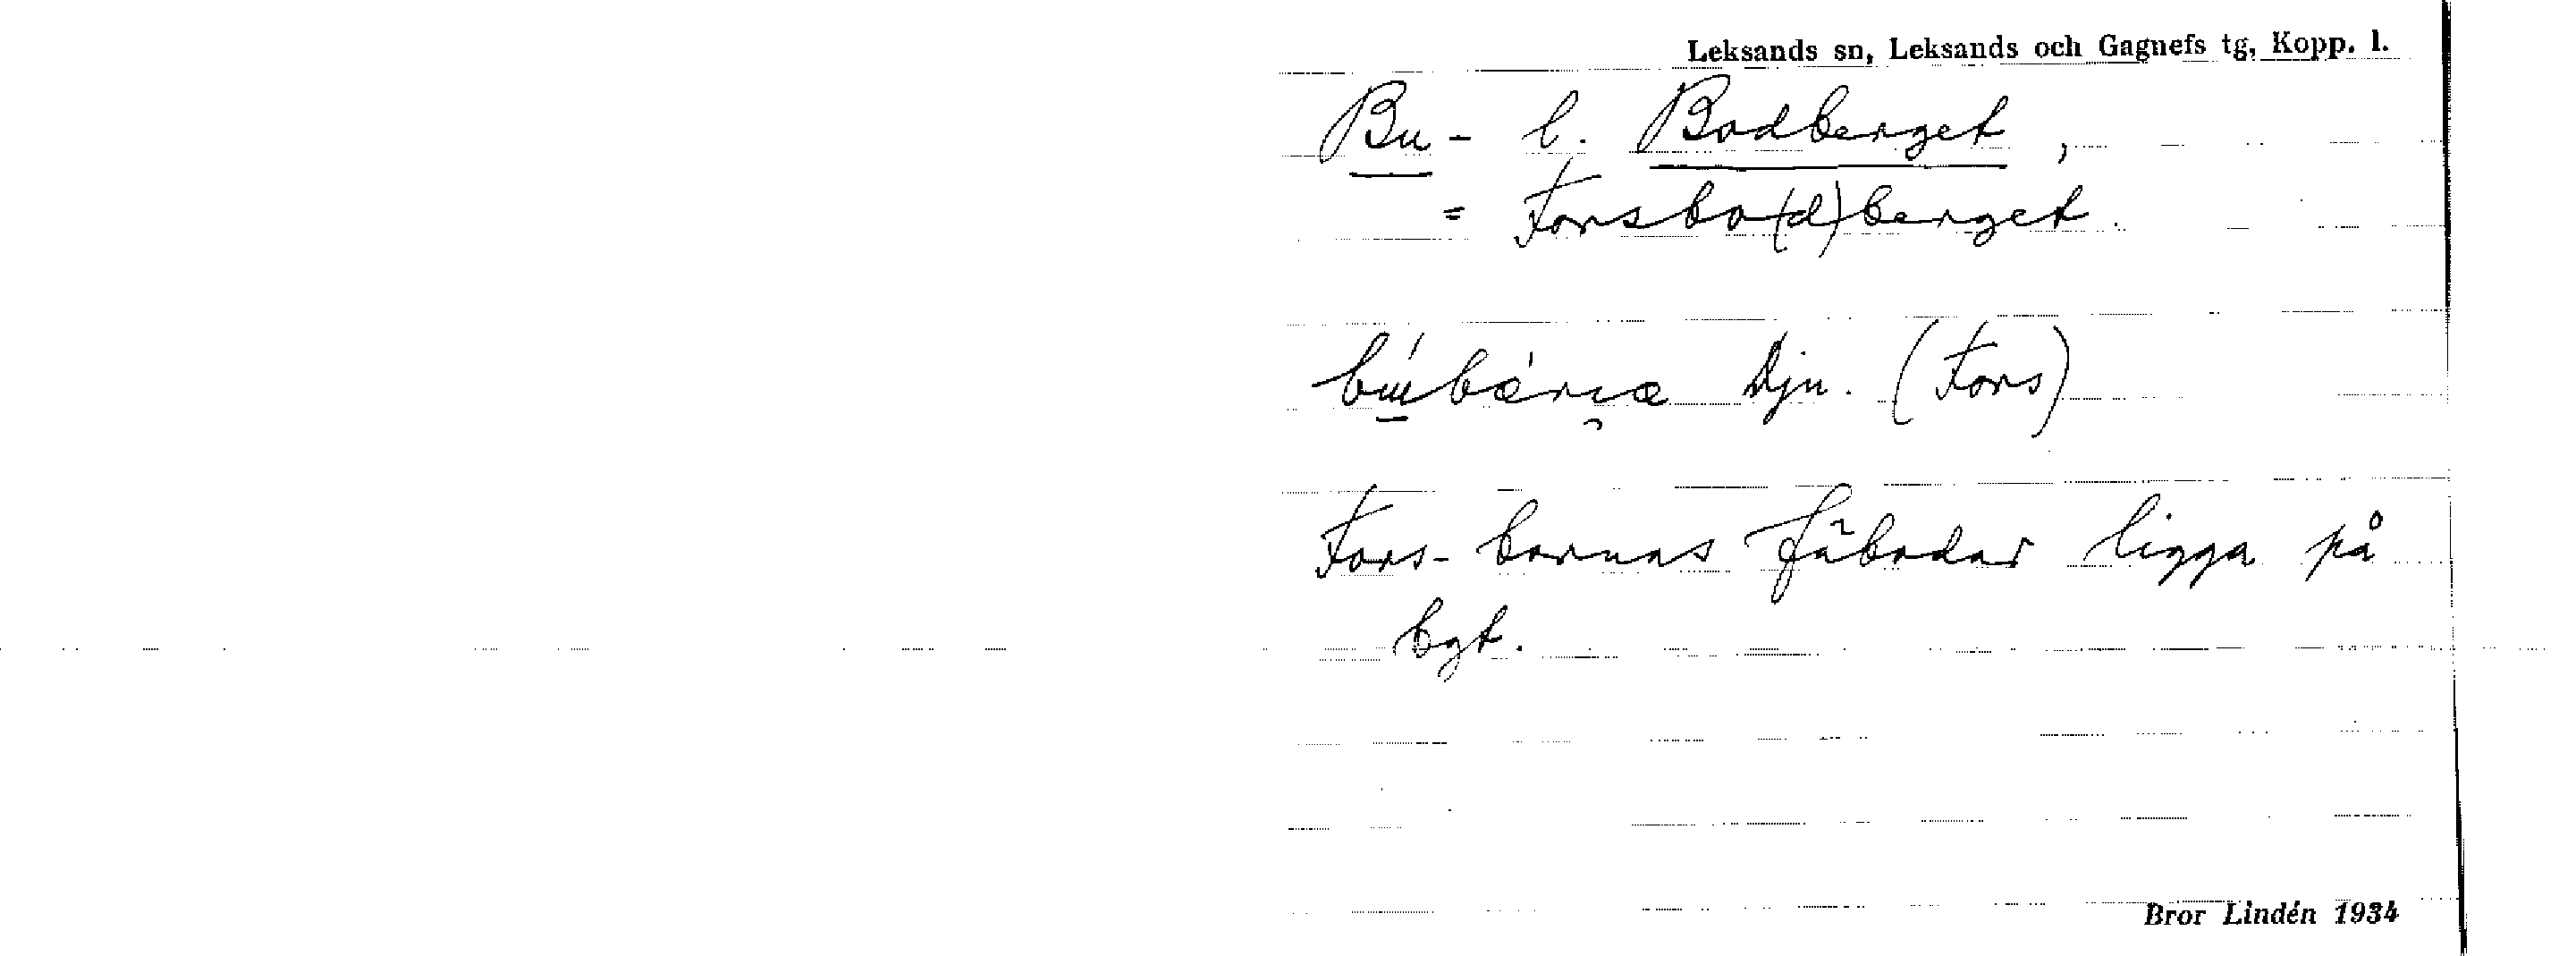 Leksands sn, Leksands och Gagnefs tg, Kopp. l.
Bu- l. Bodberget,
= Forsbo(d)berget.
Djn. (Fors)
Fors-bornas fäbodar ligga på
bgt.
Bror Lindén 1934